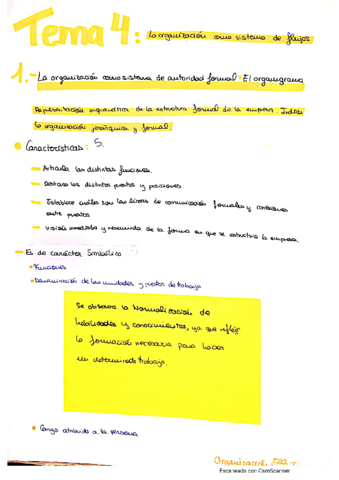 Tema 4: La organización como sistema de flujos
1.- La organización como sistema de autoridad formal: El organigrama
Representación esquemática de la estructura formal de la empresa. Indica
la organización jerárquica y formal.
Características: 5.
Articula las distintas funciones.
Destaca los distintos puestos y posiciones
Establece cuáles son las líneas de comunicación formales y conexiones
entre puestos
Visión inmediata y resumida de la forma en que se estructura la empresa.
Es de carácter Simbólico
Funciones
Denominación de las unidades y puestos de trabajo
Se observa la Normalización de
habilidades y conocimientos, ya que refleja
la formación necesaria para hacer
un determinado trabajo.
Cargo atribuido a la persona
Escaneado con CamScanner